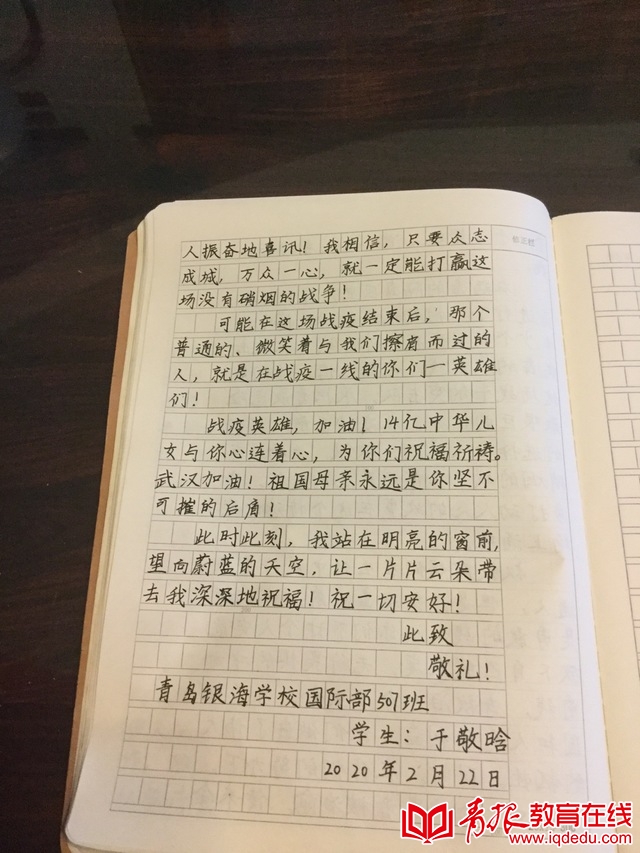 人振奋地喜讯！我相信，只要众志
成城，万众一心，就一定能打赢这
场没有硝烟的战争！
可能在这场战疫结束后，那个
普通的、微笑着与我们擦肩而过的
人，就是在战疫一线的你们—英雄
们！
战疫英雄，加油！14亿中华儿
女与你心连着心，为你们祝福祈祷。
武汉加油！祖国母亲永远是你坚不
可摧的后盾！
此时此刻，我站在明亮的窗前，
望向蔚蓝的天空，让一片片云朵带
去我深深地祝福！祝一切安好！
此致
敬礼！
青岛银海学校国际部507班
学生：于敬晗
2020年2月22日
青报教育在线
www.iqdedu.com